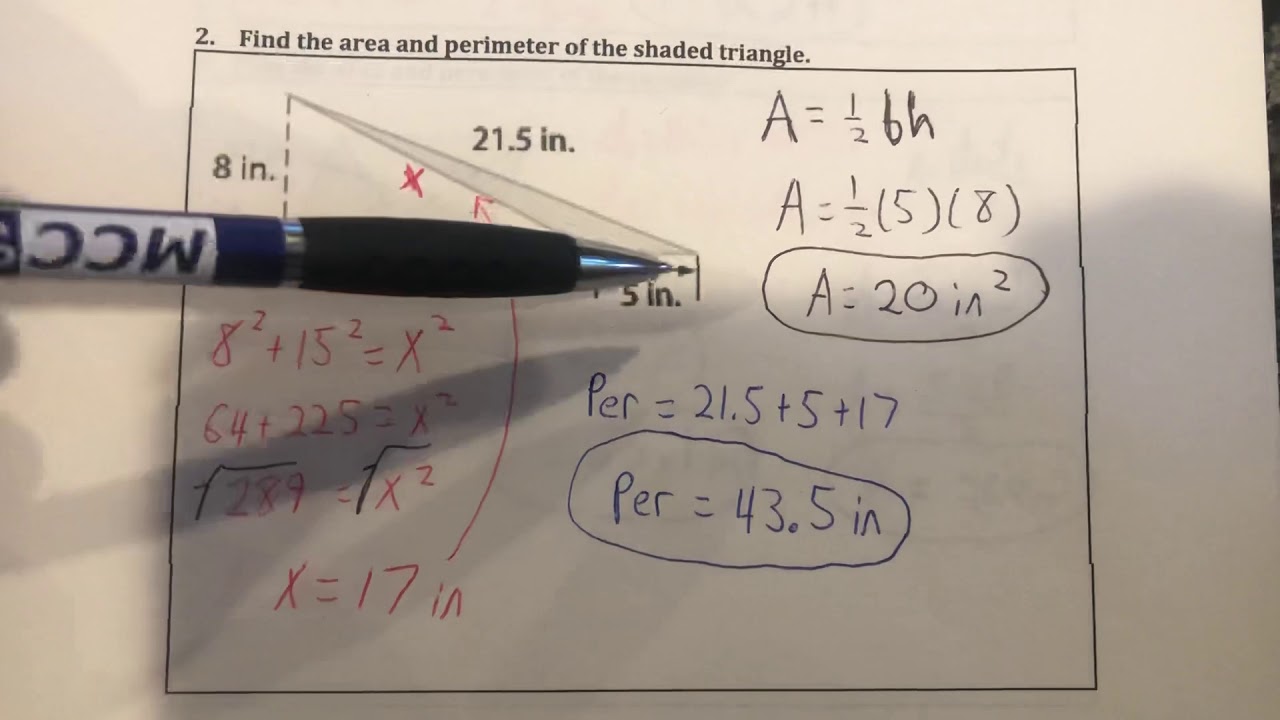 2. Find the area and perimeter of the shaded triangle.
21.5 in.
8 in.
x
MCC
5 in.
A = 1/2 bh
A = 1/2 (5)(8)
A = 20 in²
8² + 15² = x²
64 + 225 = x²
√289 = √x²
x = 17 in
Per = 21.5 + 5 + 17
Per = 43.5 in